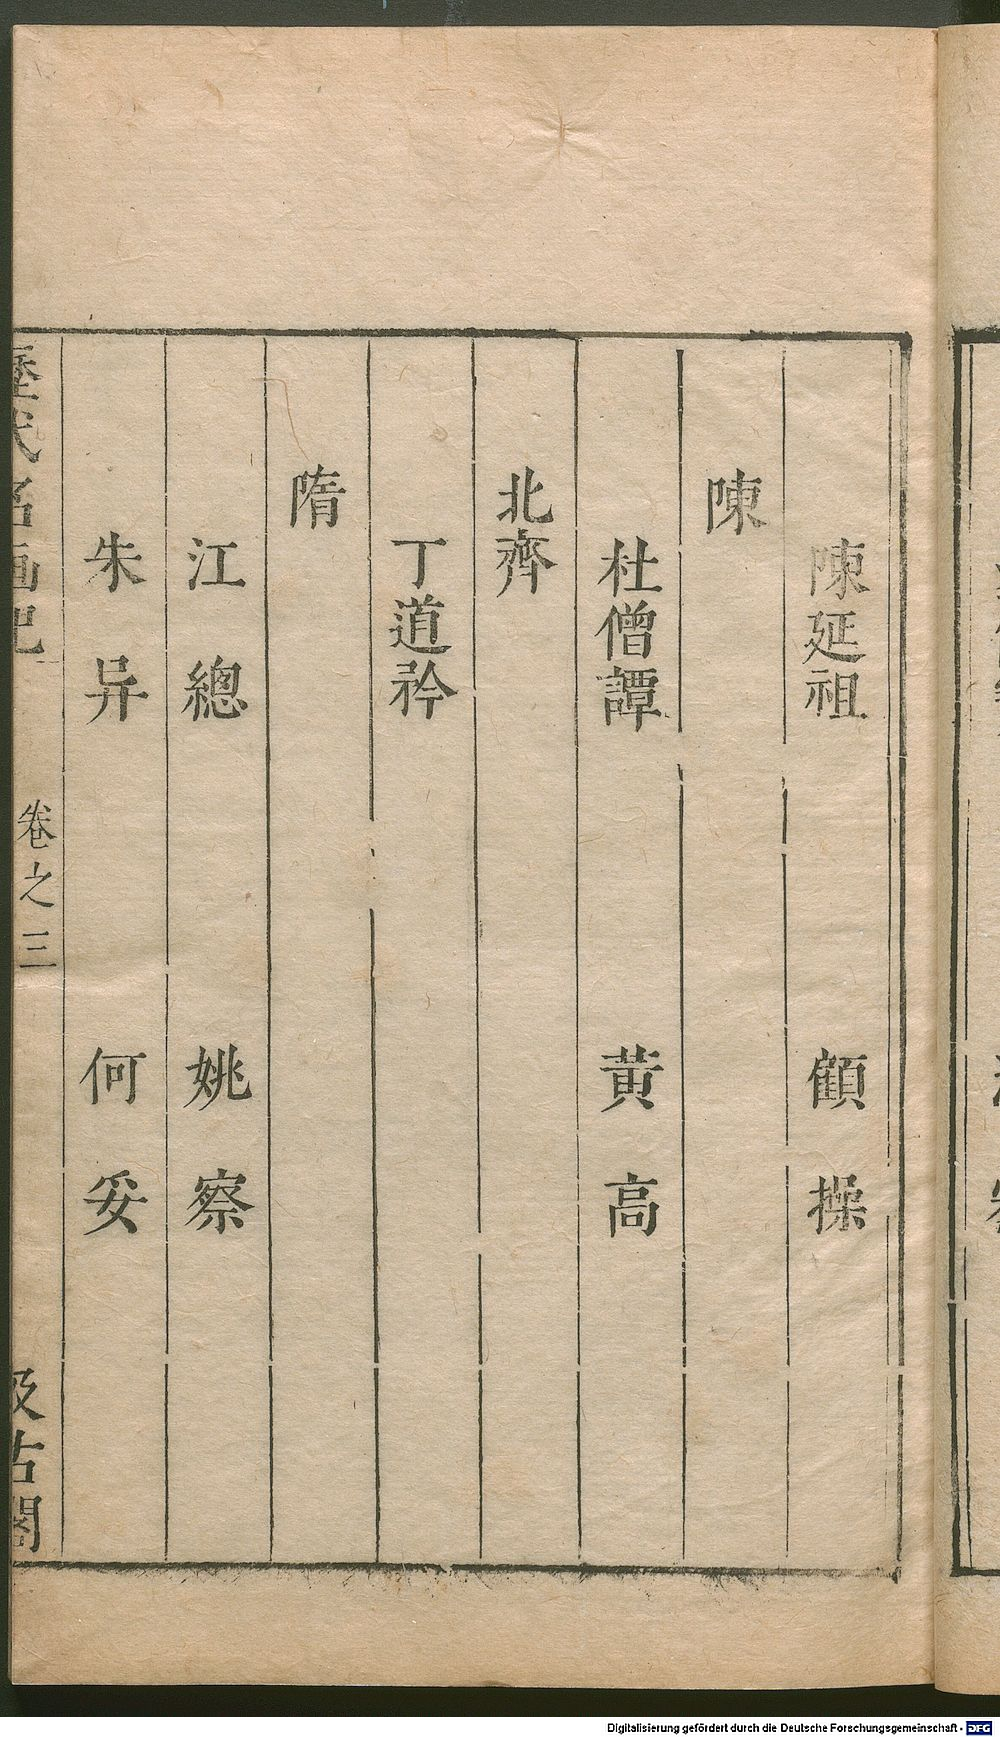 陳延祖 顧操
陳
杜僧譚 黄高
北齊
丁道矜
隋
江總 姚察
朱异 何妥
歷代名画記 卷之三 汲古閣
Digitalisierung gefördert durch die Deutsche Forschungsgemeinschaft - DFG